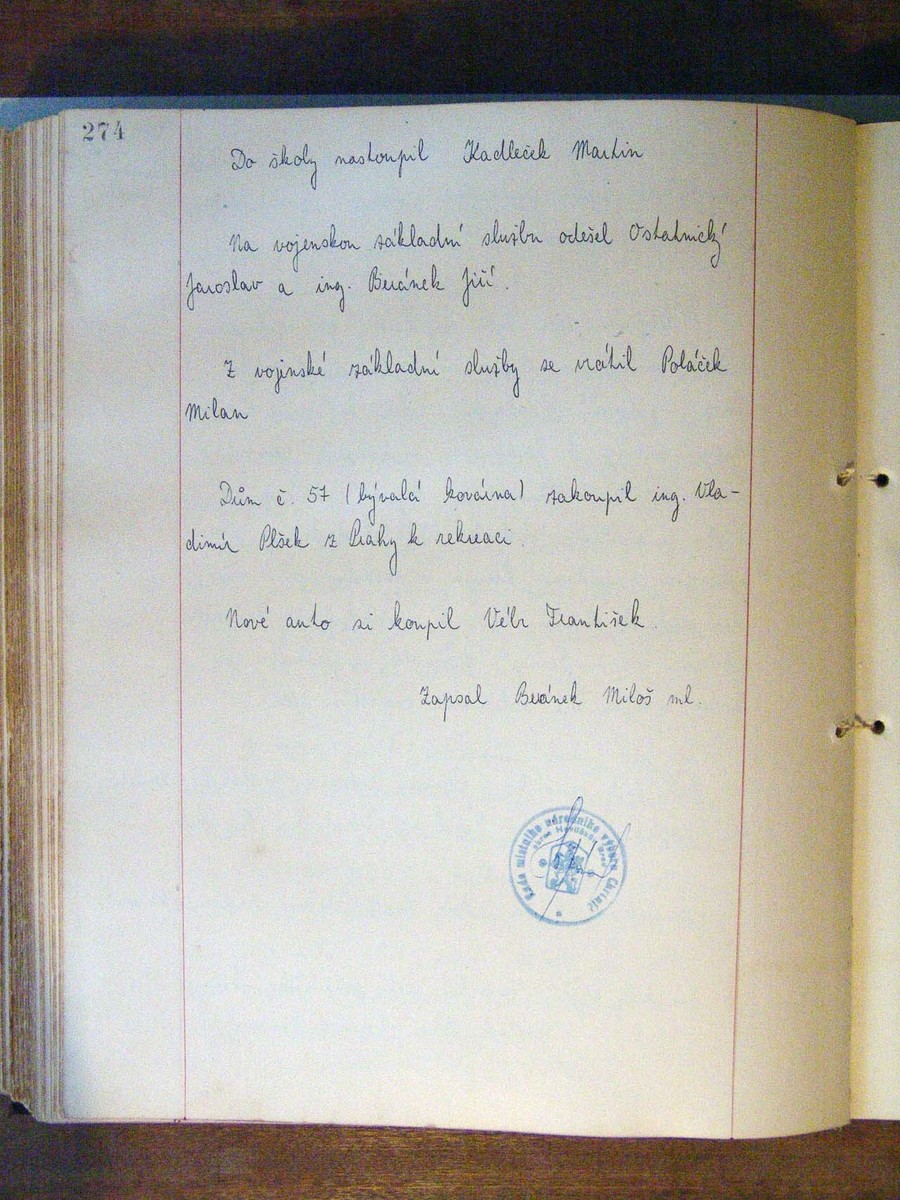 274
Do školy nastoupil Kadleček Martin
Na vojenskou základní službu odešel Ostatnický
Jaroslav a ing. Beránek Jiří.
Z vojinské základní služby se vrátil Poláček
Milan
Dům č. 57 (bývalá kovárna) zakoupil ing. Vla-
dimír Plšek z Prahy k rekreaci.
Nové auto si koupil Vébr František.
Zapsal Beránek Miloš ml.
Rada místního národního výboru
okres Havlíčkův Brod